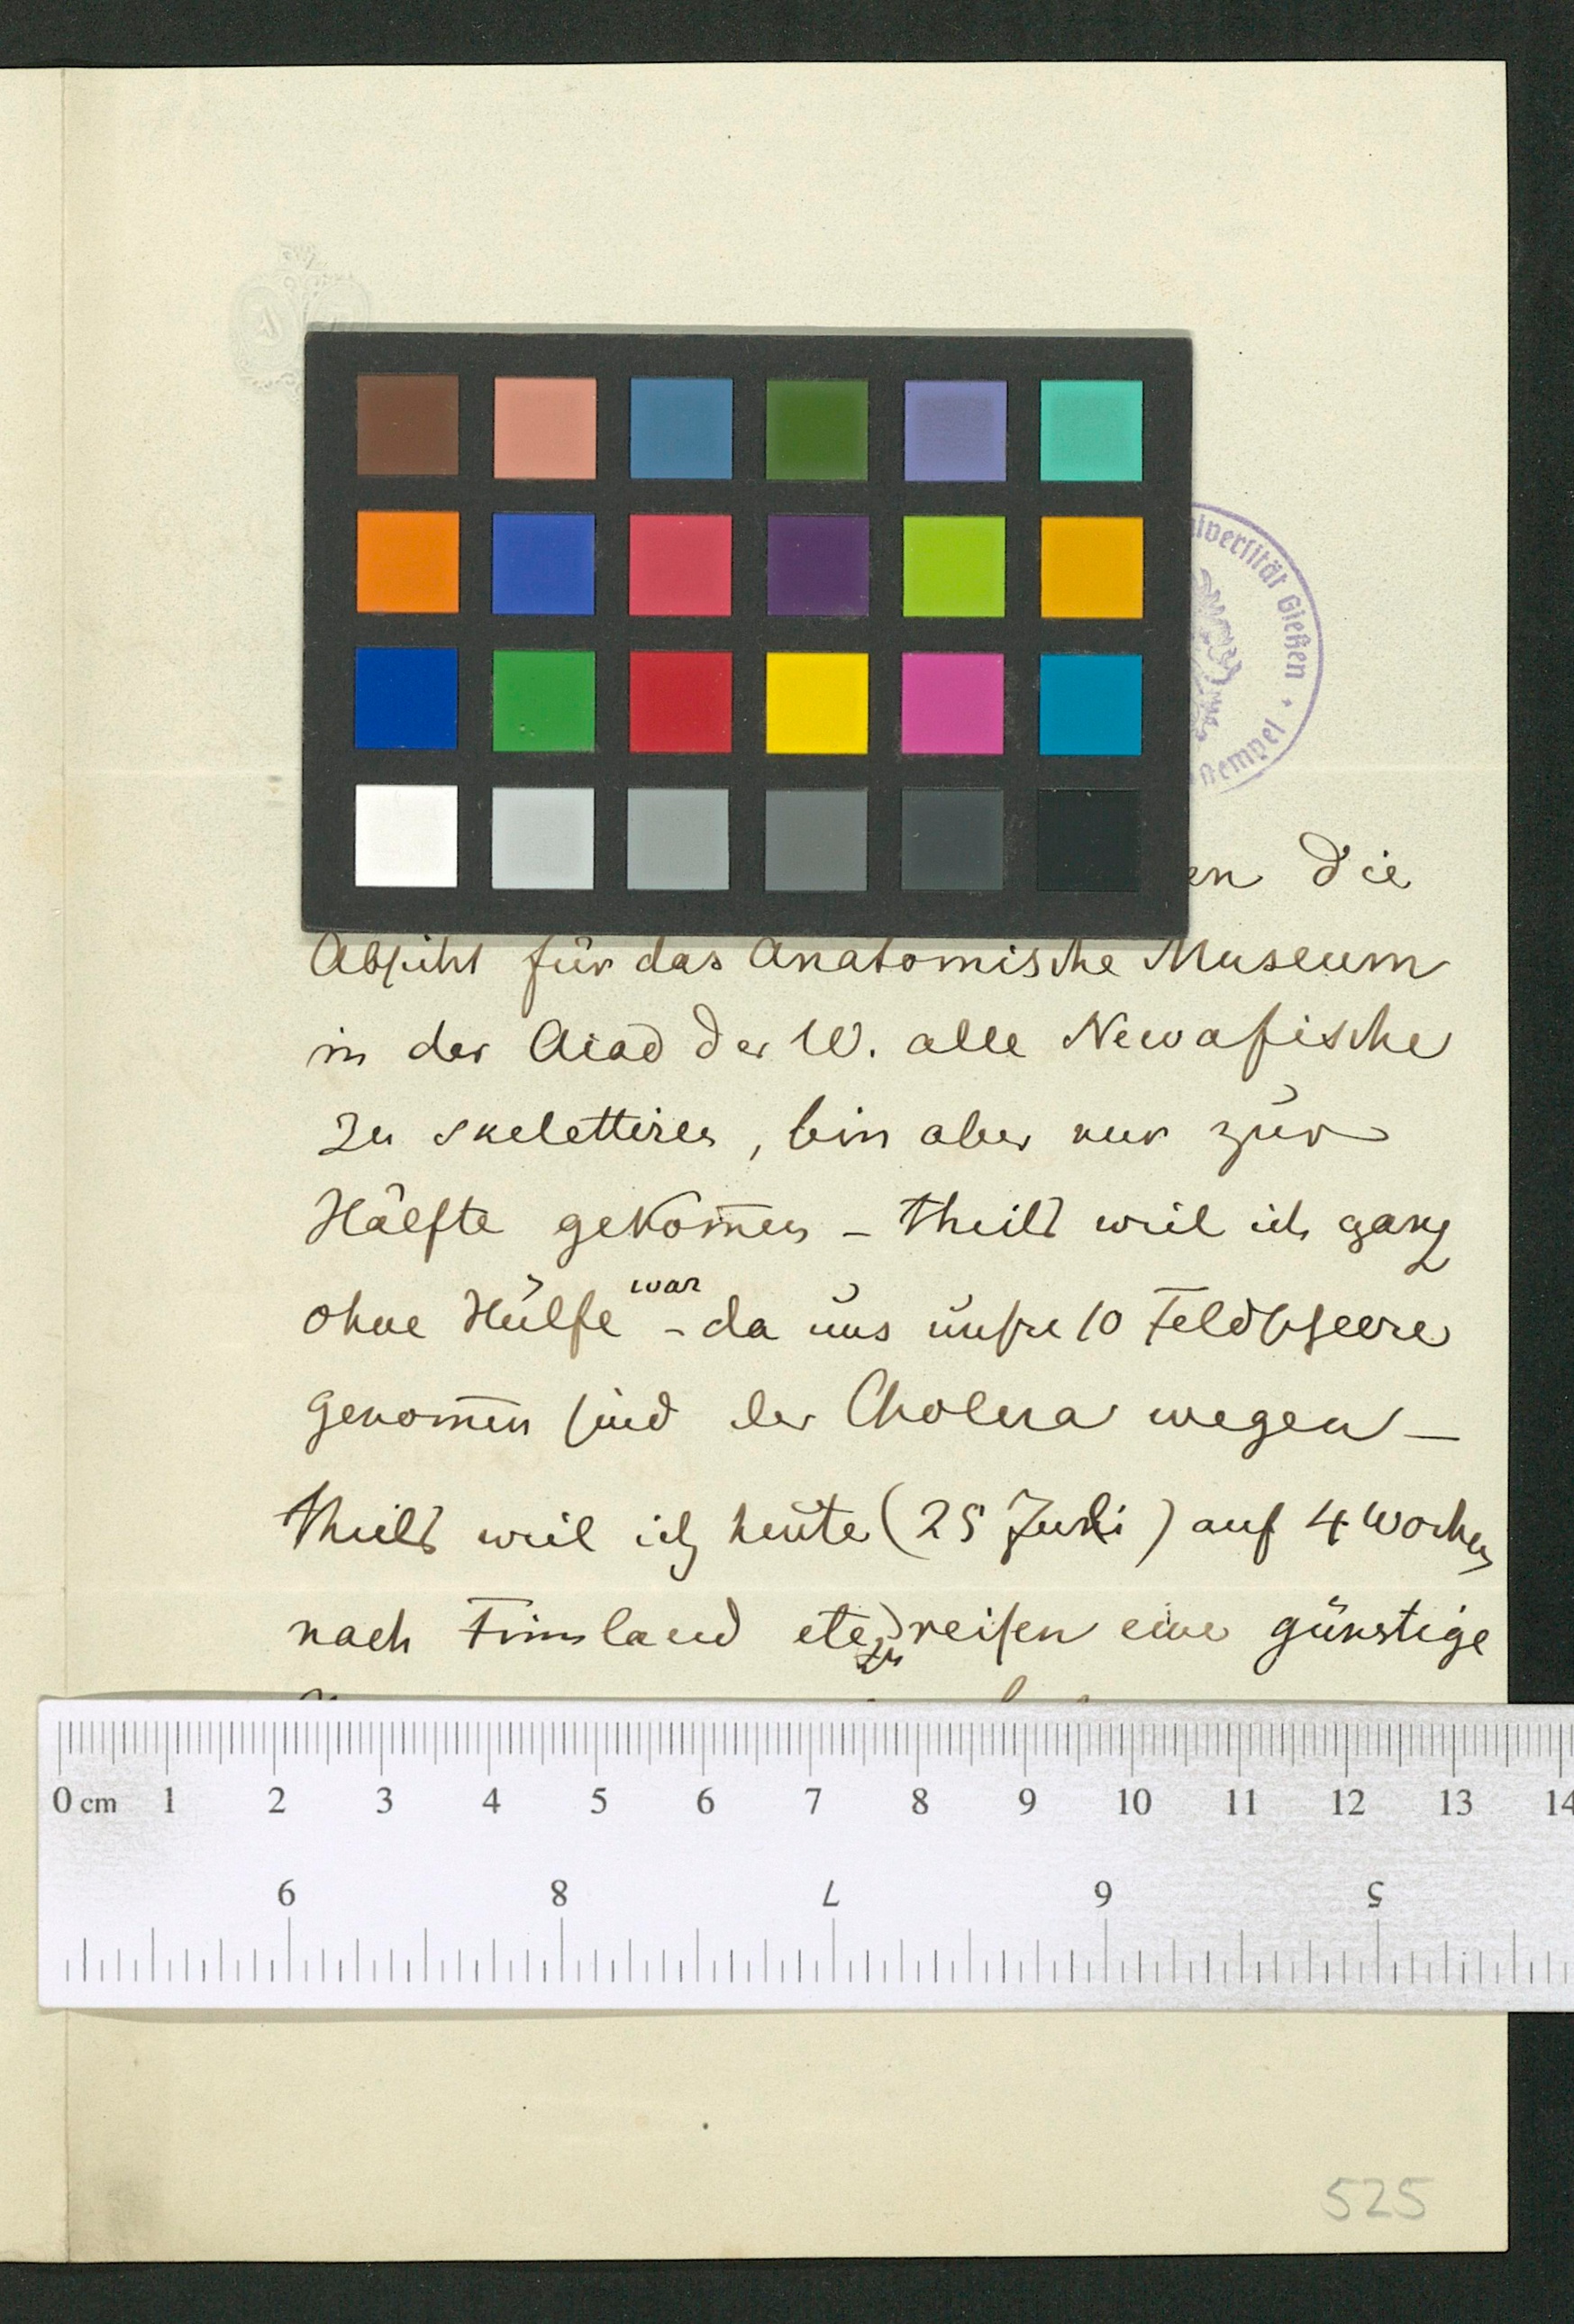 iversität Gießen
stempel
en die
Absicht für das Anatomische Museum
in der Acad der W. alle Newafische
zu skelettiren, bin aber nur zur
Hälfte gekom̅en – theils weil ich ganz
ohne Hülfe war – da uns unsre 10 Feldscheere
genom̅en sind der Cholera wegen –
theils weil ich heute (25 Juli) auf 4 Wochen
nach Finnland etc zu reisen eine günstige
0 cm 1 2 3 4 5 6 7 8 9 10 11 12 13 14
9 8 7 6 5
525